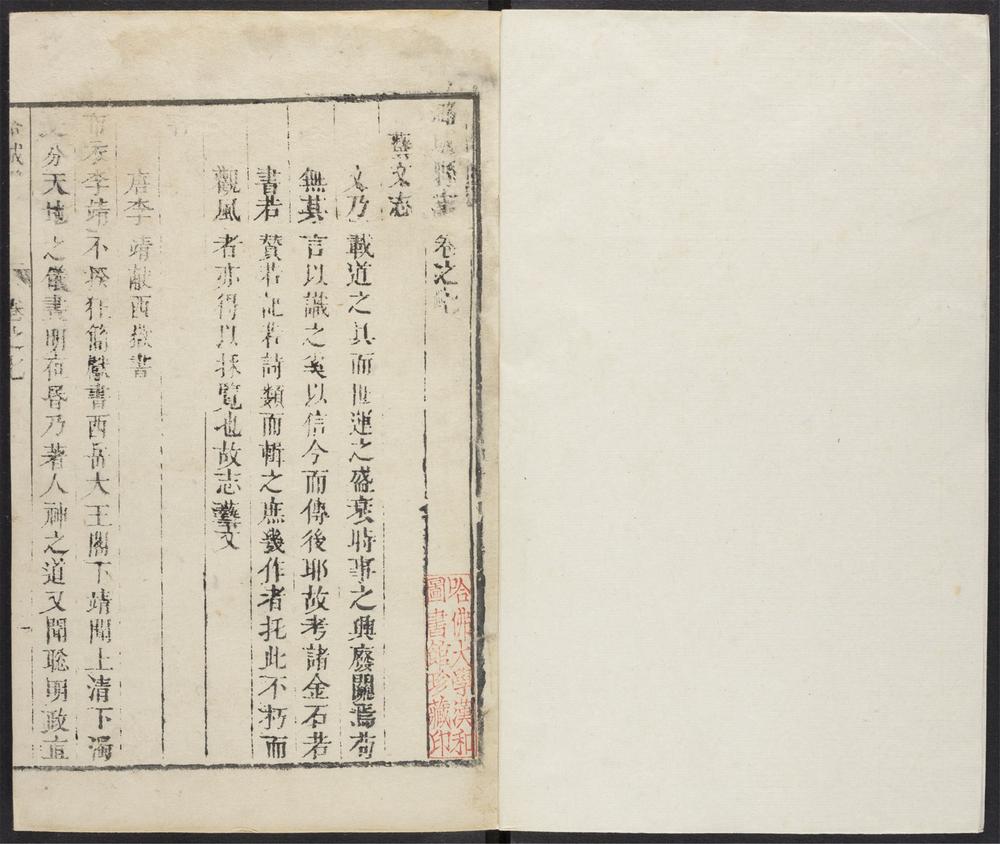 縣志 卷之七
藝文志
文乃載道之具而世運之盛衰時事之興廢關焉苟
無其言以識之奚以信今而傳後耶故考諸金石若
書若贊若記若詩類而輯之庶幾作者托此不朽而
觀風者亦得以採覽也故志藝文
唐李靖獻西嶽書
布衣李靖不揆狂簡獻書西岳大王閣下靖聞上清下濁
爰分天地之儀晝明夜昏乃著人神之道又聞聰明政直
卷之七
哈佛大學漢和
圖書館珍藏印